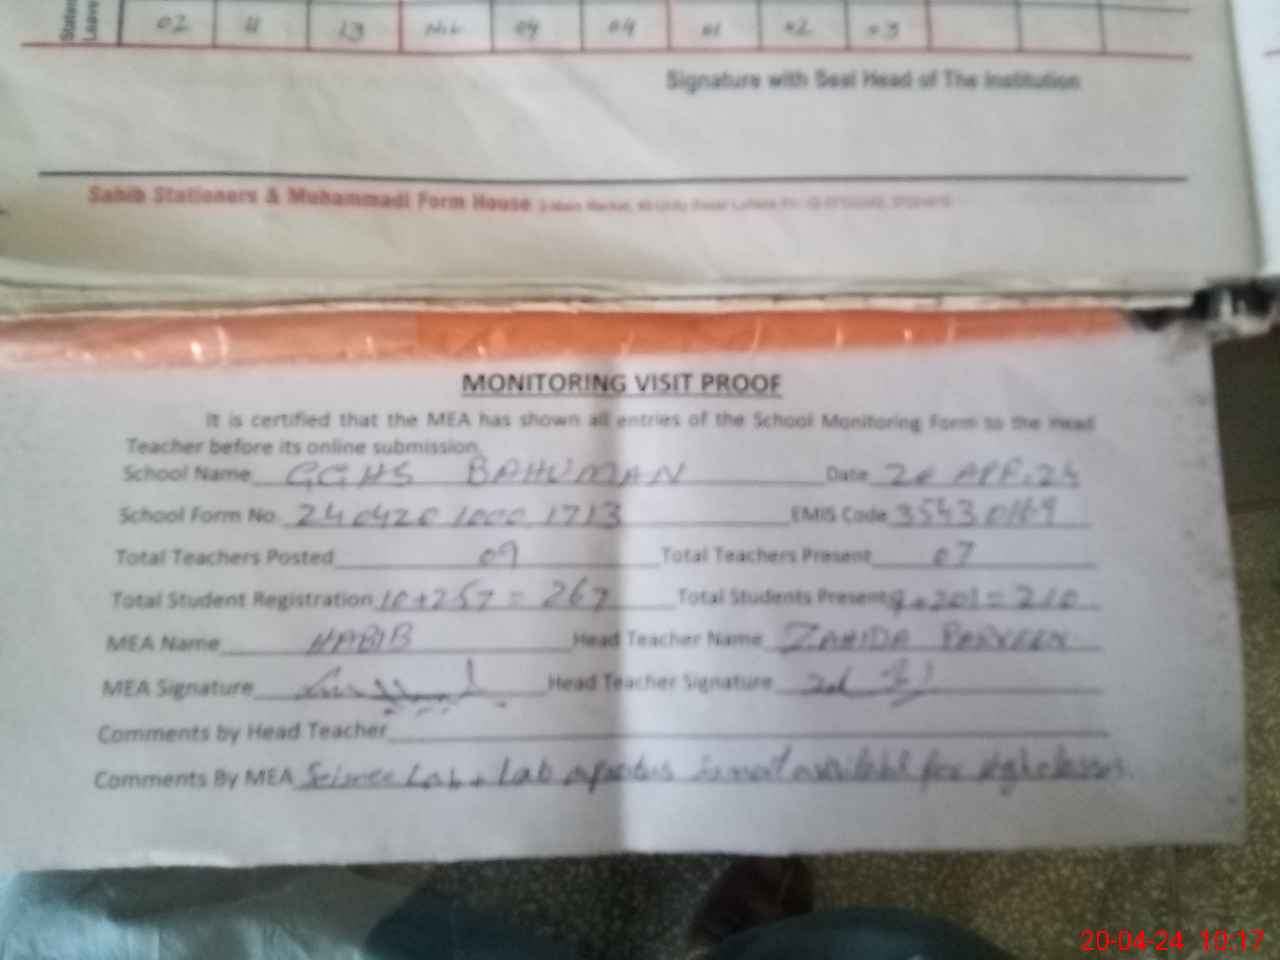 Leave 02 11 13 Nil 04 04 01 02 03
Signature with Seal Head of The Institution
Sahib Stationers & Muhammadi Form House
MONITORING VISIT PROOF
It is certified that the MEA has shown all entries of the School Monitoring Form to the Head
Teacher before its online submission.
School Name GGHS BAHUMAN Date 20 APR.24
School Form No. 240420 1000 1713 EMIS Code 35430169
Total Teachers Posted 09 Total Teachers Present 07
Total Student Registration 10+257 = 267 Total Students Present 9+201=210
MEA Name HABIB Head Teacher Name ZAHIDA PARVEEN
MEA Signature Head Teacher Signature
Comments by Head Teacher
Comments By MEA Science Lab + Lab is not available for high classes.
20-04-24 10:17